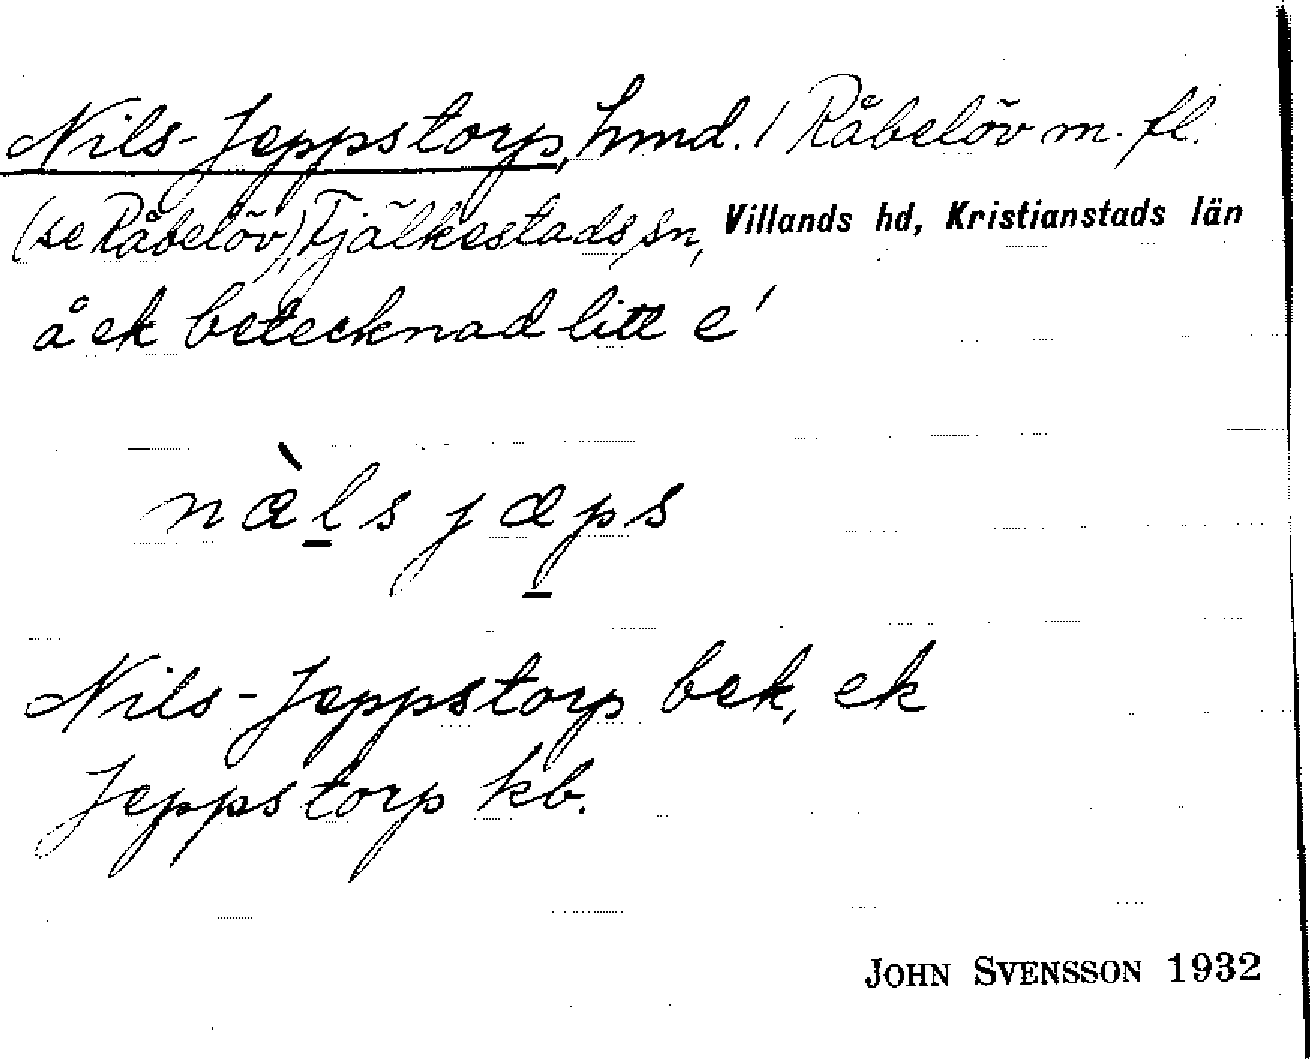 Nils-Jeppstorp, hmd. / Råbelöv m. fl.
(se Råbelöv), Fjälkestads sn, Villands hd, Kristianstads län
å ek betecknad litt e'
næ̀l̲s jæp̲s
Nils-Jeppstorp bek, ek
Jeppstorp kb.
JOHN SVENSSON 1932